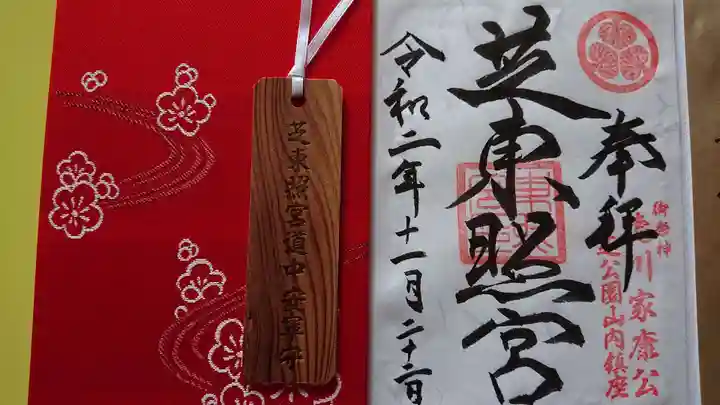 奉拝
御祭神
徳川家康公
芝公園山内鎮座
芝東照宮
令和二年十一月二十二日
芝東照宮道中安全守